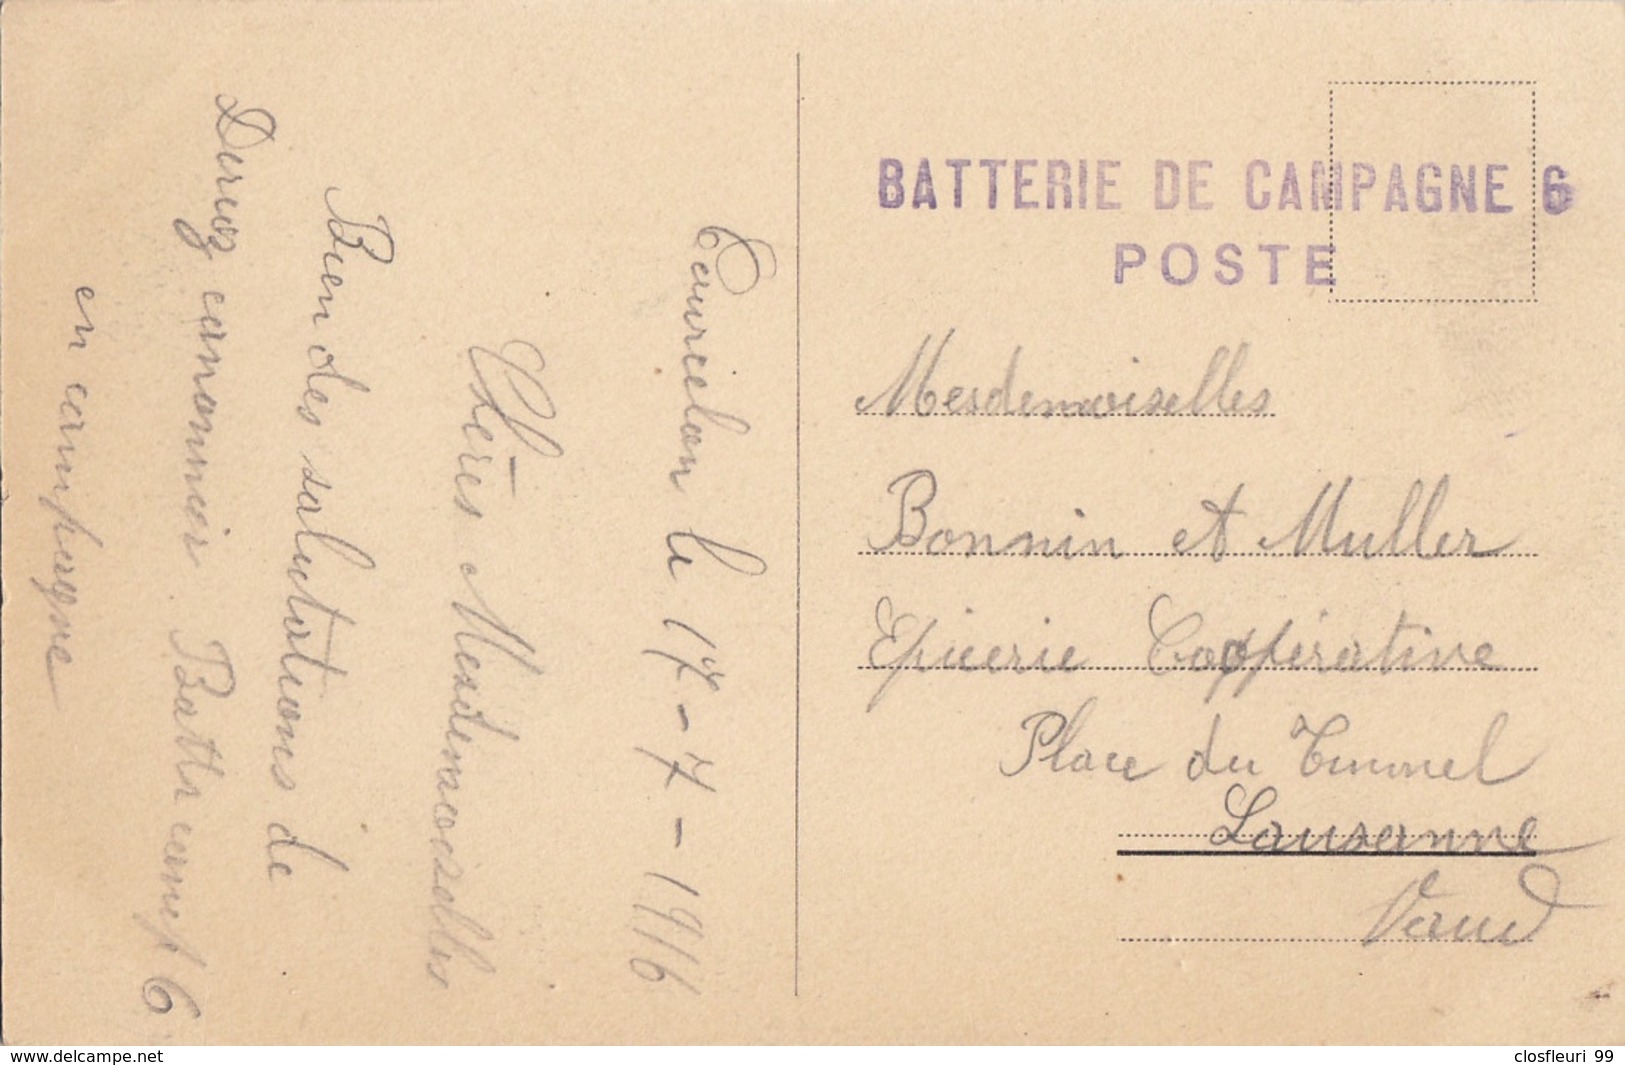 Courcelon le 17-7-1916
Chères Mesdemoiselles
Bien des salutations de
Deriaz canonnier Battr camp 6
en campagne
BATTERIE DE CAMPAGNE 6
POSTE
Mesdemoiselles
Bonnin et Muller
Epicerie Coopérative
Place du Tunnel
Lausanne
Vaud
www.delcampe.net
closfleuri 99